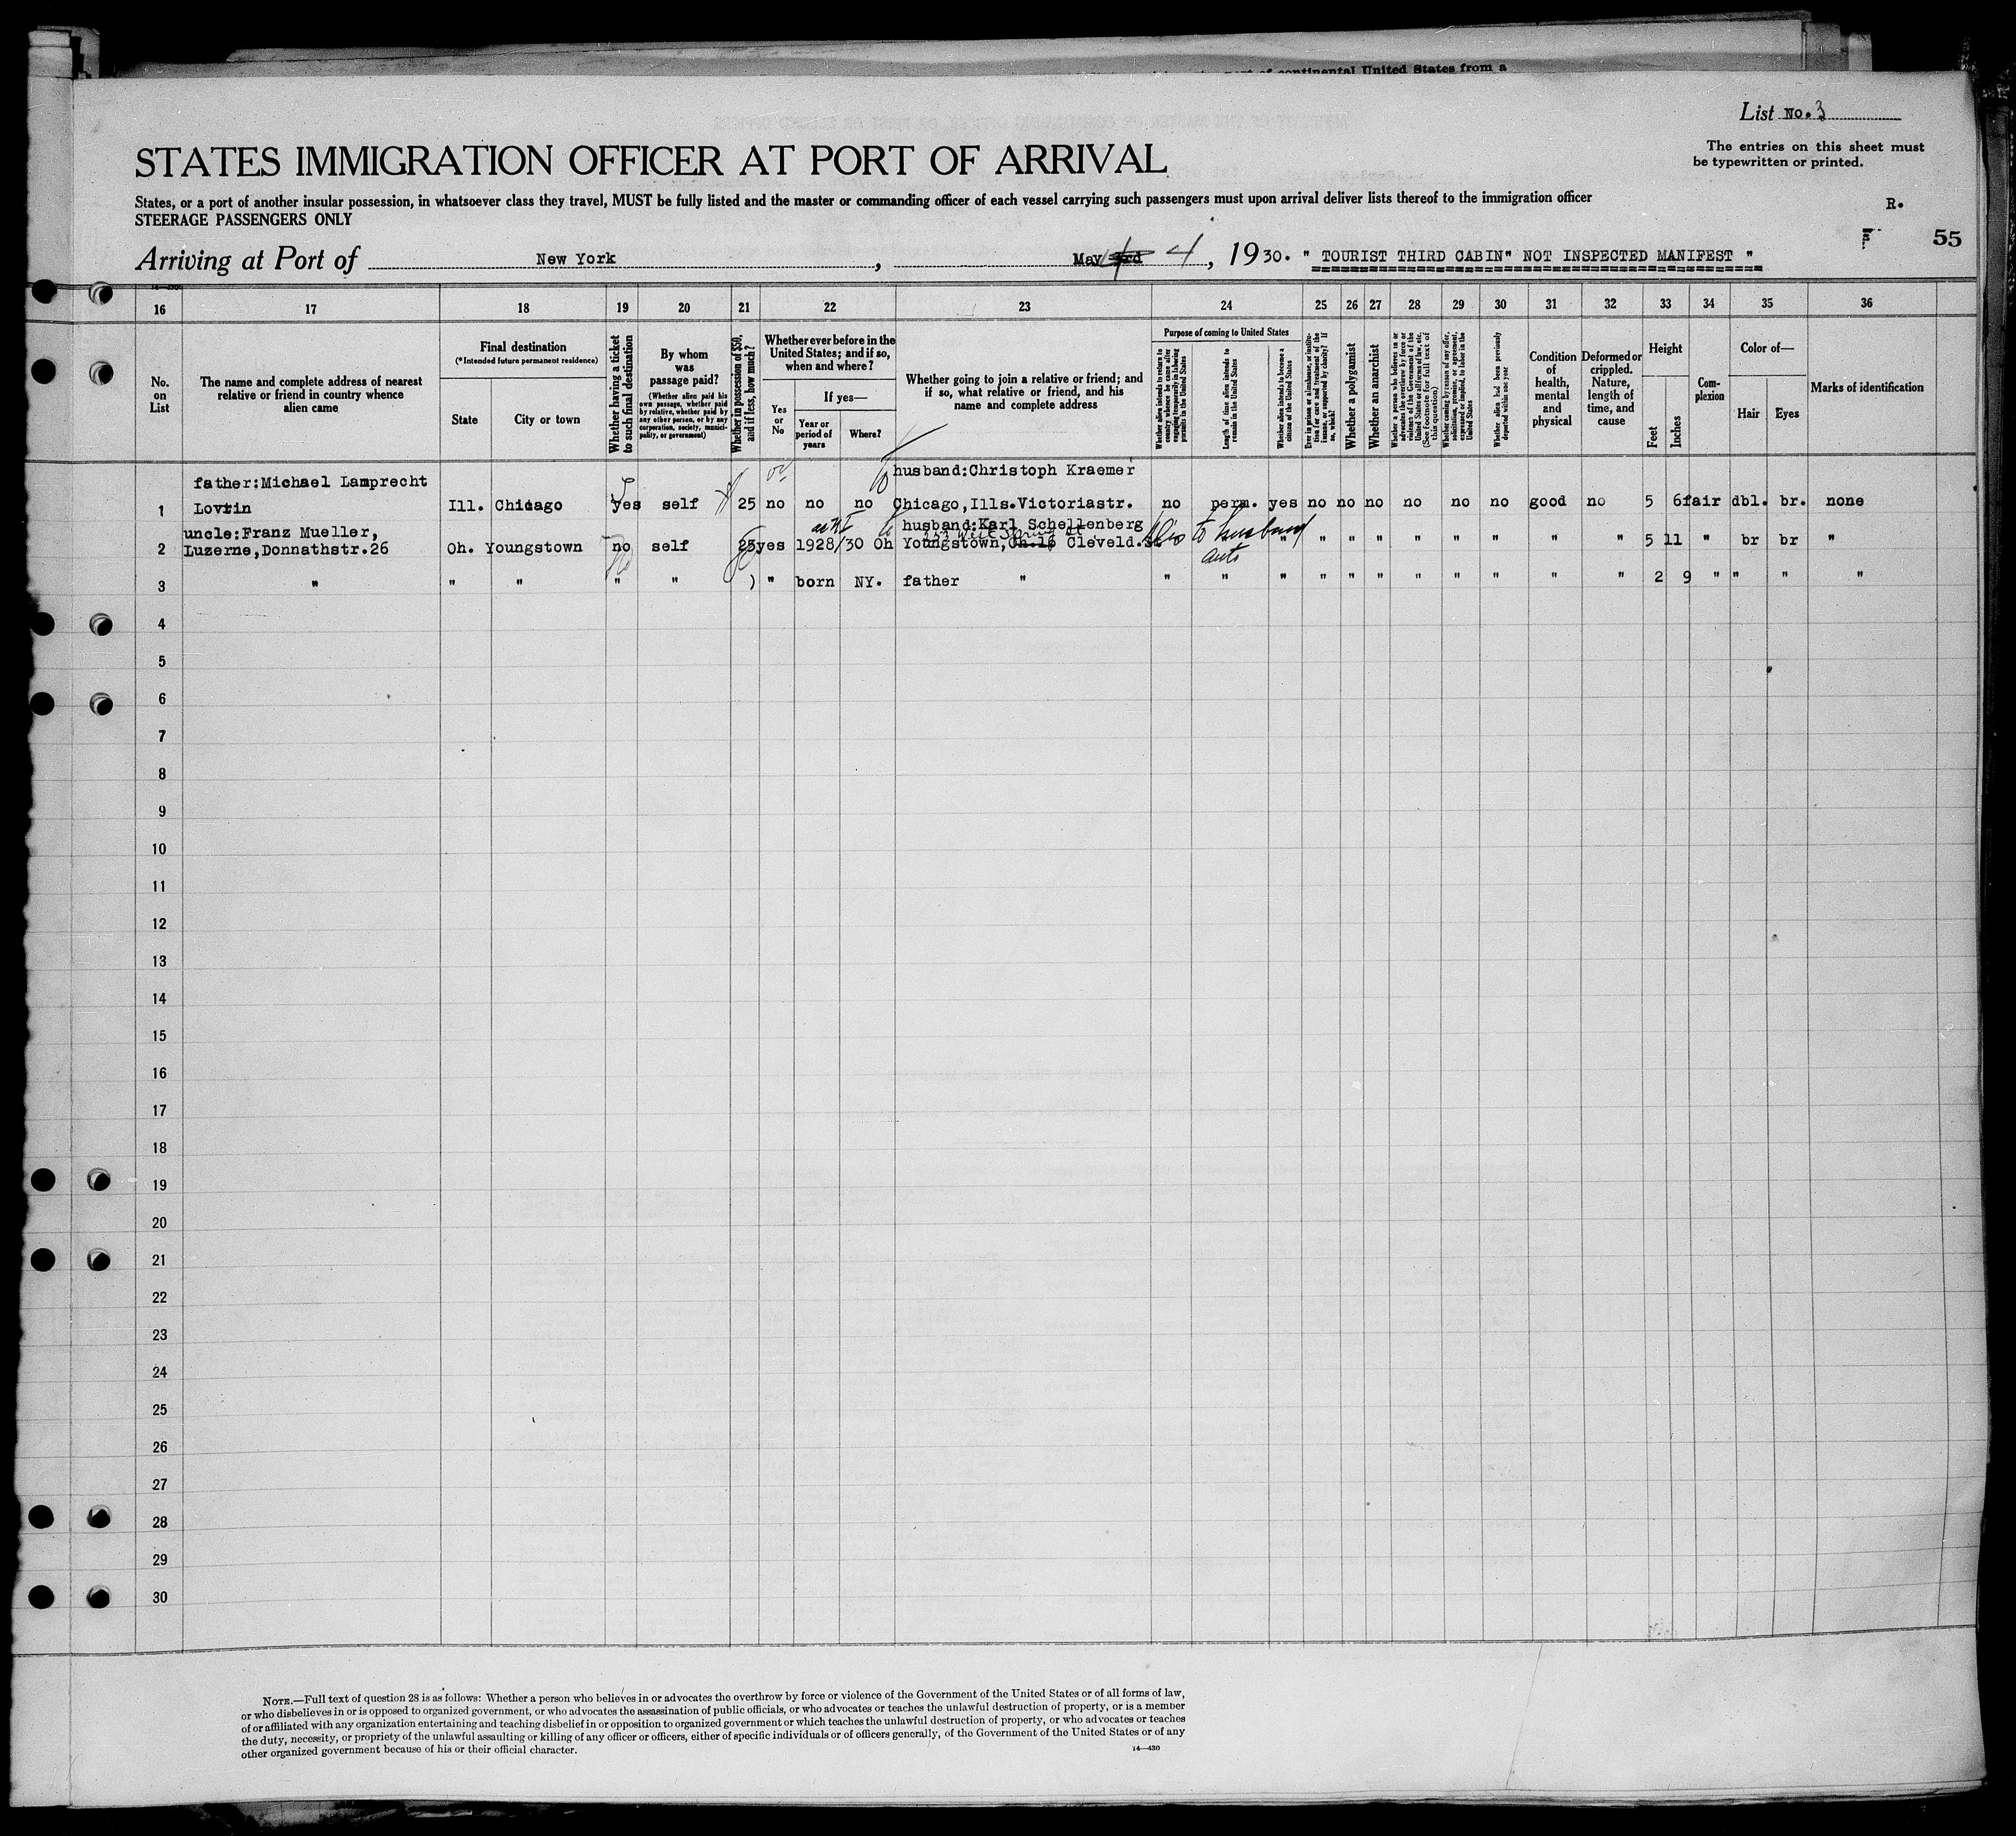 of continental United States from a
List No. 3
The entries on this sheet must
be typewritten or printed.
STATES IMMIGRATION OFFICER AT PORT OF ARRIVAL
States, or a port of another insular possession, in whatsoever class they travel, MUST be fully listed and the master or commanding officer of each vessel carrying such passengers must upon arrival deliver lists thereof to the immigration officer
STEERAGE PASSENGERS ONLY
R.
F 55
Arriving at Port of New York, May 3rd 4, 1930. " TOURIST THIRD CABIN" NOT INSPECTED MANIFEST "
16 17 18 19 20 21 22 23 24 25 26 27 28 29 30 31 32 33 34 35 36
No.
on
List
The name and complete address of nearest
relative or friend in country whence
alien came
Final destination
(*Intended future permanent residence)
State
City or town
Whether having a ticket
to such final destination
By whom
was
passage paid?
(Whether alien paid his
own passage, whether paid
by relative, whether paid by
any other person, or by any
corporation, society, munici-
pality, or government)
Whether in possession of $50,
and if less, how much?
Whether ever before in the
United States; and if so,
when and where?
Yes
or
No
If yes—
Year or
period of
years
Where?
Whether going to join a relative or friend; and
if so, what relative or friend, and his
name and complete address
Purpose of coming to United States
Whether alien intends to return to
country whence he came after
engaging temporarily in laboring
pursuits in the United States
Length of time alien intends to
remain in the United States
Whether alien intends to become a
citizen of the United States
Ever in prison or almshouse, or institu-
tion for care and treatment of the
insane, or supported by charity? If
so, which?
Whether a polygamist
Whether an anarchist
Whether a person who believes in or
advocates the overthrow by force or
violence of the Government of the
United States or all forms of law, etc.
(See footnote for full text of
this question)
Whether coming by reason of any offer,
solicitation, promise, or agreement,
expressed or implied, to labor in the
United States
Whether alien had been previously
deported within one year
Condition
of
health,
mental
and
physical
Deformed or
crippled.
Nature,
length of
time, and
cause
Height
Feet
Inches
Com-
plexion
Color of—
Hair
Eyes
Marks of identification
father:Michael Lamprecht husband:Christoph Kraemer
1 Lovrin Ill. Chicago yes self 25 no no no Chicago,Ills.Victoriastr. no perm. yes no no no no no no good no 5 6 fair dbl. br. none
uncle:Franz Mueller, husband:Karl Schellenberg
2 Luzerne,Donnathstr.26 Oh. Youngstown no self 25 yes 1928/30 Oh Youngstown, Oh.15 Cleveld.St to husband " " " " " " " " " 5 11 " br br "
3 " " " " " ) " born NY. father " " " " " " " " " " " " 2 9 " " " "
4
5
6
7
8
9
10
11
12
13
14
15
16
17
18
19
20
21
22
23
24
25
26
27
28
29
30
NOTE.—Full text of question 28 is as follows: Whether a person who believes in or advocates the overthrow by force or violence of the Government of the United States or of all forms of law,
or who disbelieves in or is opposed to organized government, or who advocates the assassination of public officials, or who advocates or teaches the unlawful destruction of property, or is a member
of or affiliated with any organization entertaining and teaching disbelief in or opposition to organized government or which teaches the unlawful destruction of property, or who advocates or teaches
the duty, necessity, or propriety of the unlawful assaulting or killing of any officer or officers, either of specific individuals or of officers generally, of the Government of the United States or of any
other organized government because of his or their official character.
14—430